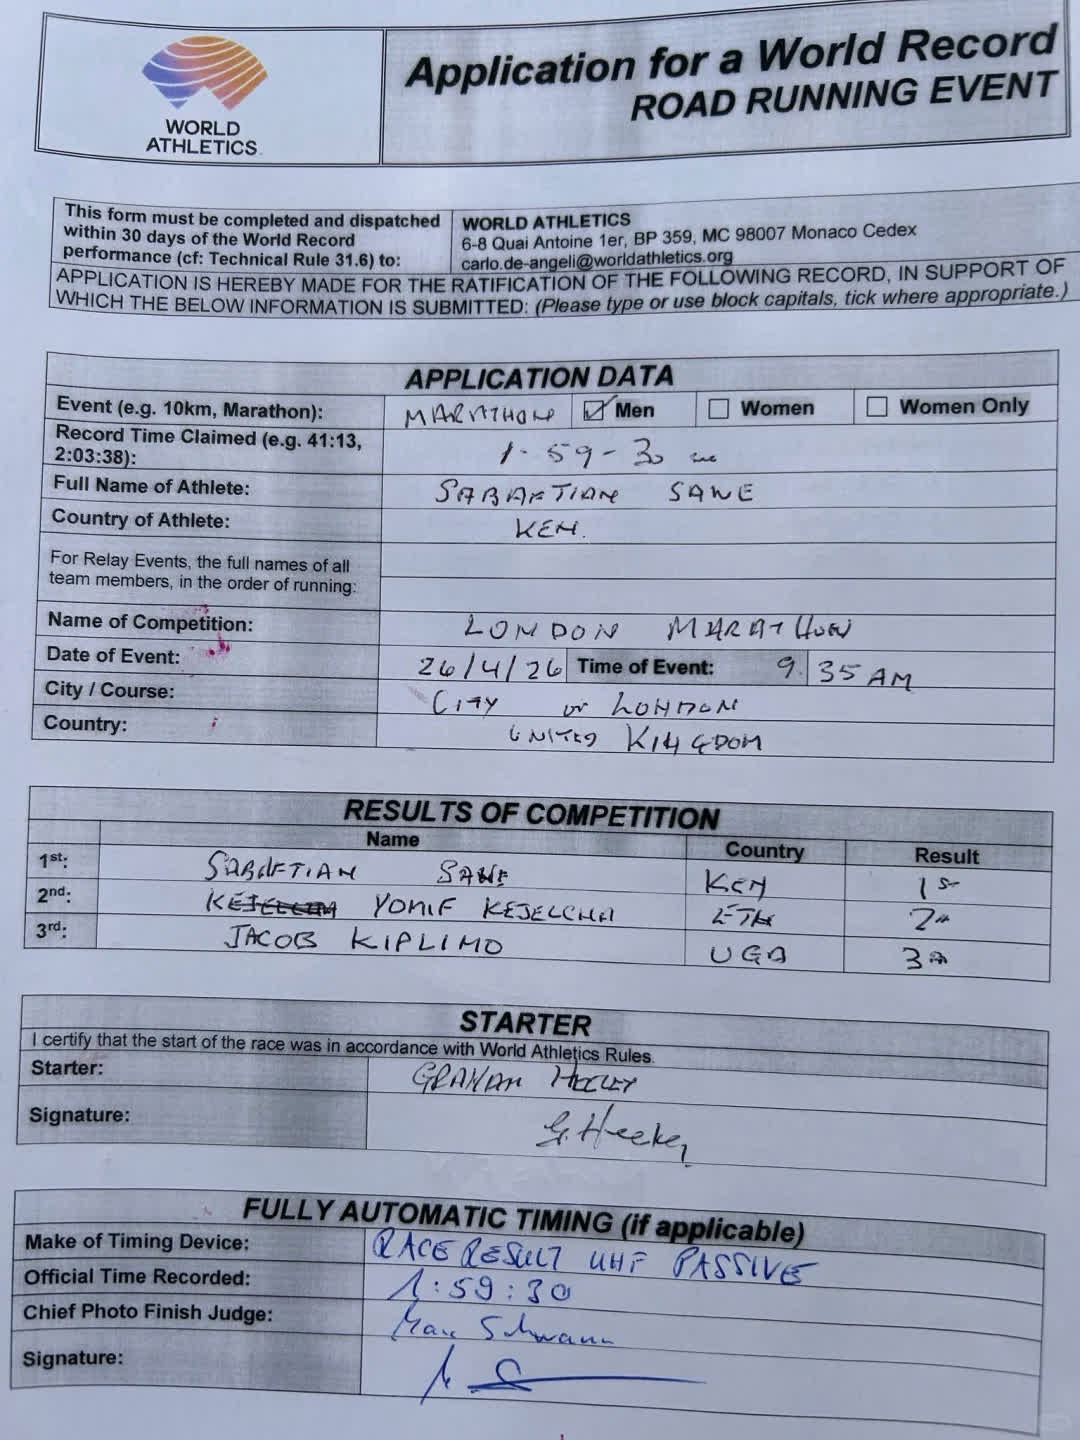 WORLD
ATHLETICS
Application for a World Record
ROAD RUNNING EVENT
This form must be completed and dispatched
within 30 days of the World Record
performance (cf: Technical Rule 31.6) to:
WORLD ATHLETICS
6-8 Quai Antoine 1er, BP 359, MC 98007 Monaco Cedex
carlo.de-angeli@worldathletics.org
APPLICATION IS HEREBY MADE FOR THE RATIFICATION OF THE FOLLOWING RECORD, IN SUPPORT OF
WHICH THE BELOW INFORMATION IS SUBMITTED: (Please type or use block capitals, tick where appropriate.)
APPLICATION DATA
Event (e.g. 10km, Marathon): MARATHON Men Women Women Only
Record Time Claimed (e.g. 41:13,
2:03:38): 1-59-30
Full Name of Athlete: SABAFTIAN SAWE
Country of Athlete: KEN.
For Relay Events, the full names of all
team members, in the order of running:
Name of Competition: LONDON MARATHON
Date of Event: 26/4/26 Time of Event: 9.35 AM
City / Course: CITY OF LONDON
Country: UNITED KINGDOM
RESULTS OF COMPETITION
Name Country Result
1st: SABAFTIAN SAWE KEN 1st
2nd: YOMIF KEJELCHA ETH 2nd
3rd: JACOB KIPLIMO UGA 3rd
STARTER
I certify that the start of the race was in accordance with World Athletics Rules.
Starter: GRAHAM
Signature:
FULLY AUTOMATIC TIMING (if applicable)
Make of Timing Device: RACE RESULT UHF PASSIVE
Official Time Recorded: 1:59:30
Chief Photo Finish Judge:
Signature: